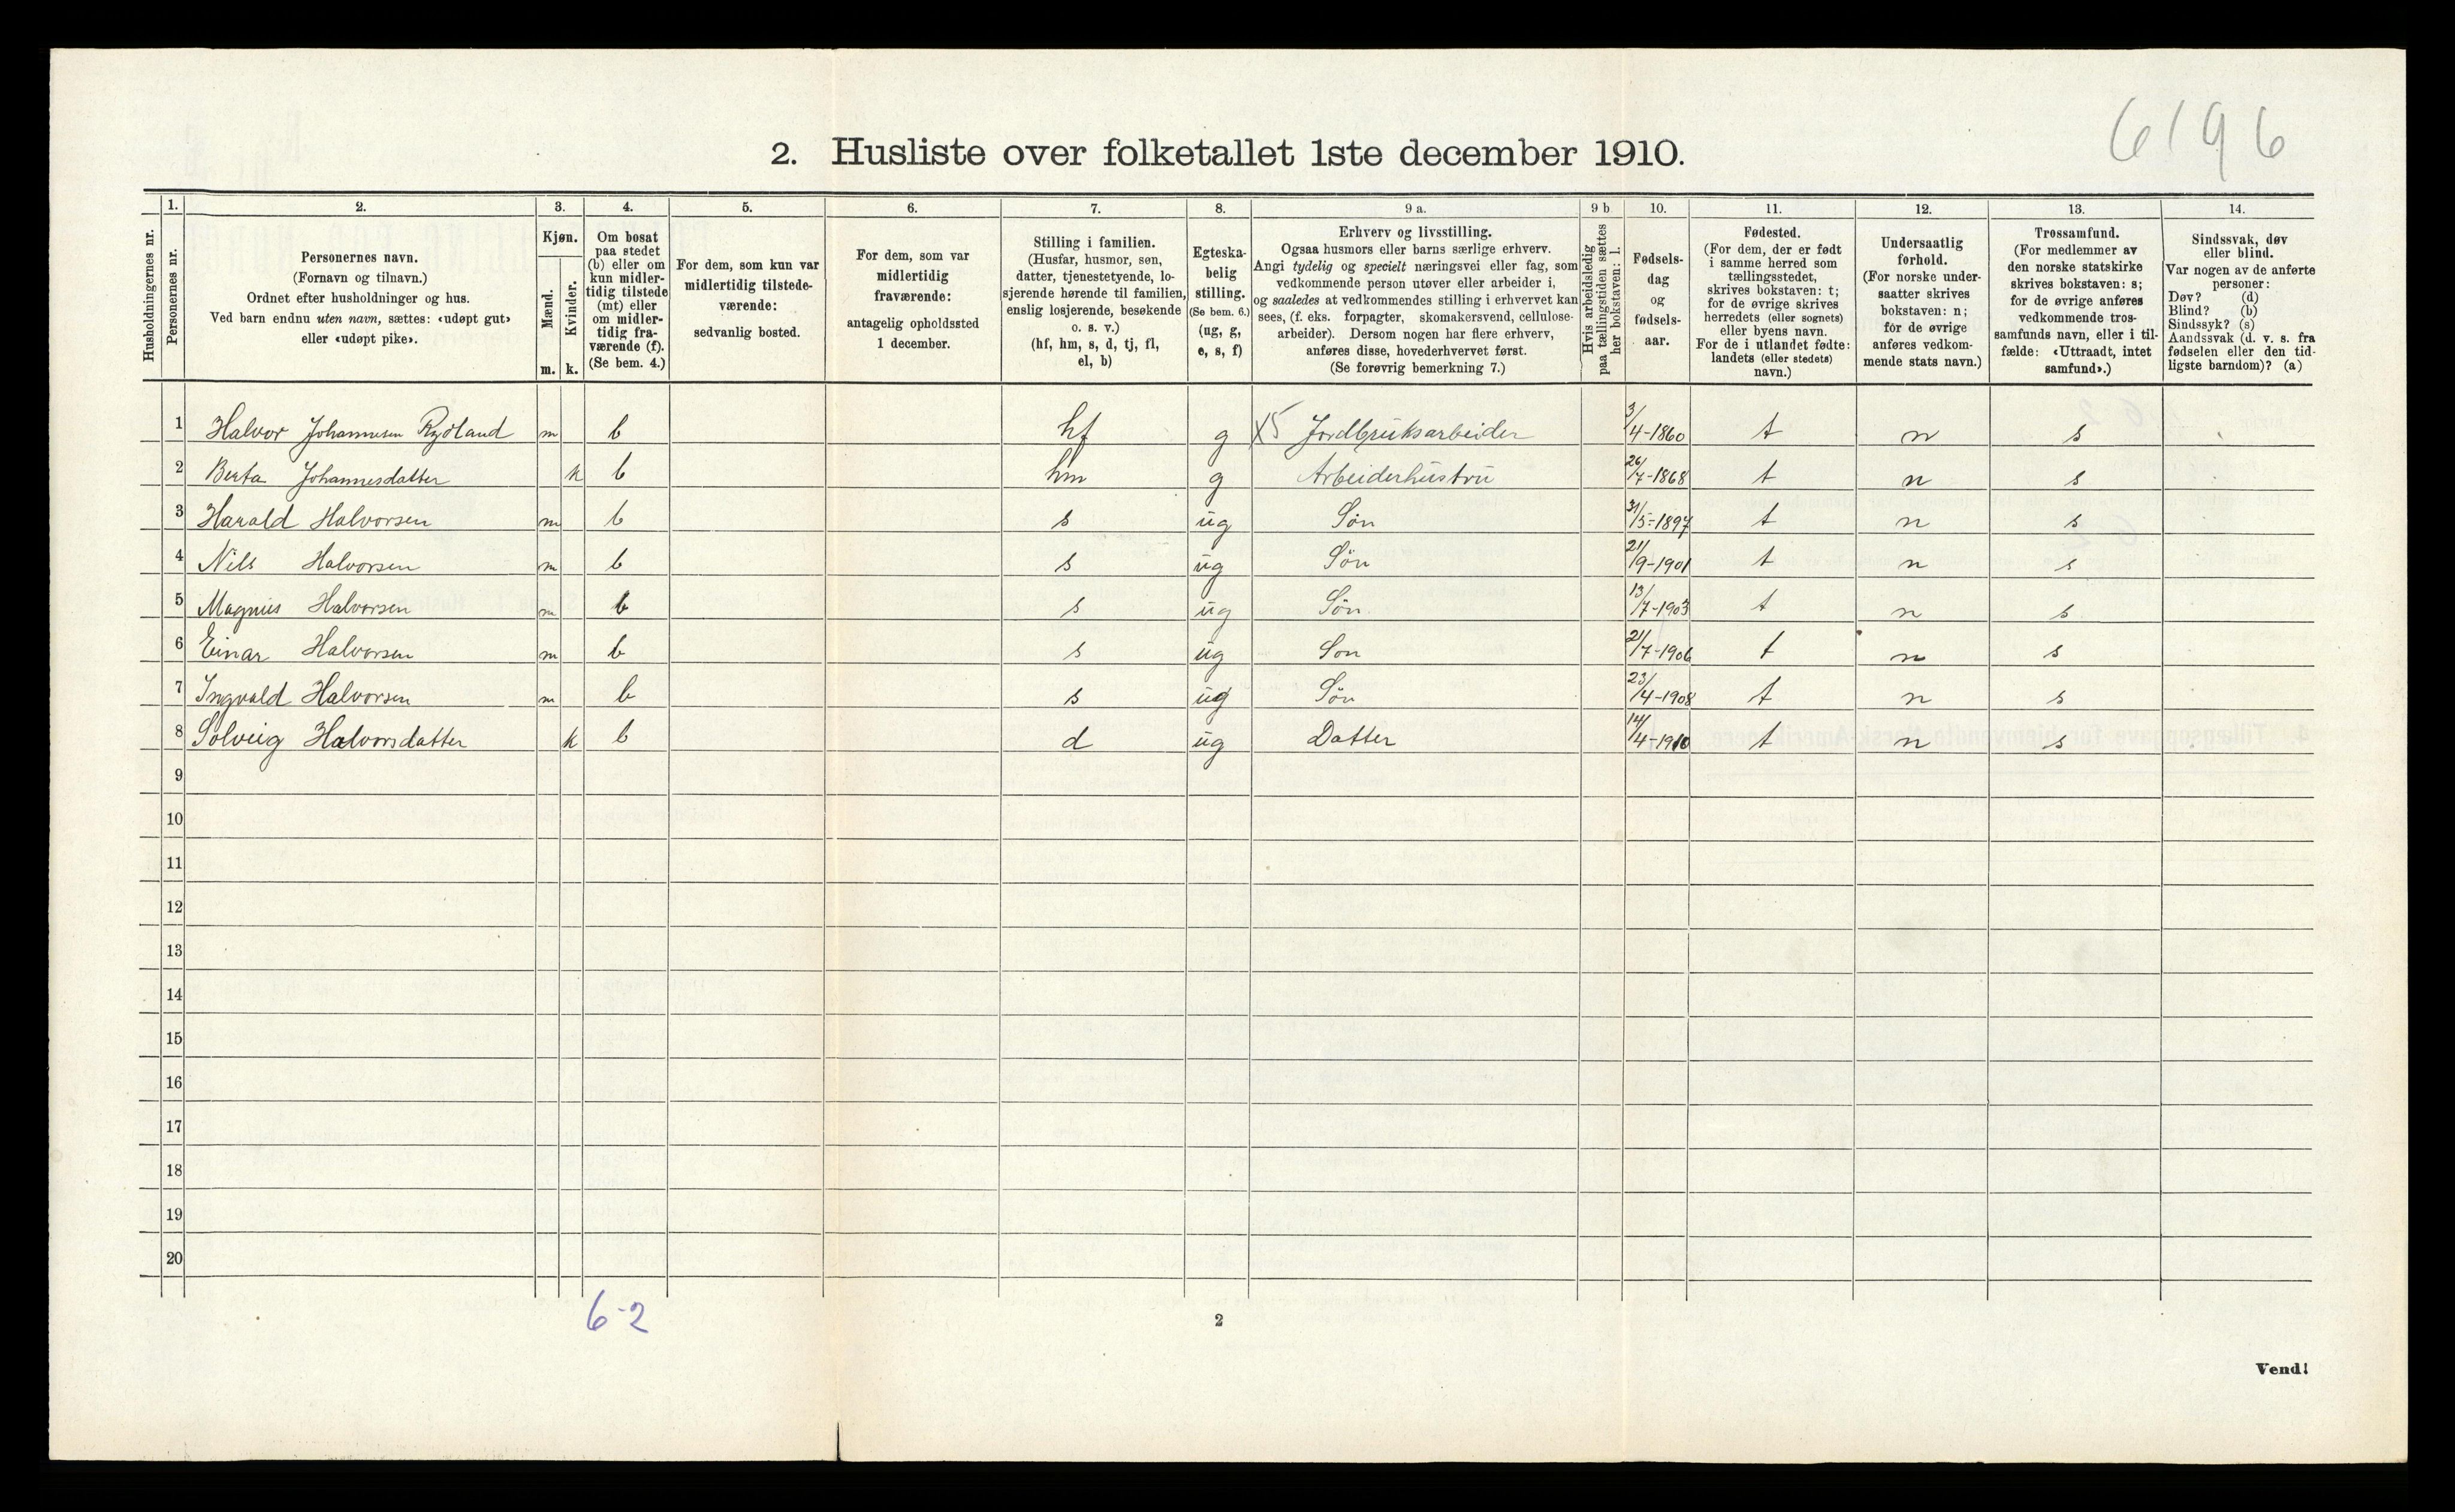 6196
2. Husliste over folketallet 1ste december 1910.
Husholdningernes nr.
1.
Personernes nr.
2.
Personernes navn.
(Fornavn og tilnavn.)
Ordnet efter husholdninger og hus.
Ved barn endnu uten navn, sættes: «udøpt gut»
eller «udøpt pike».
3.
Kjøn.
Mænd.
Kvinder.
m. k.
4.
Om bosat
paa stedet
(b) eller om
kun midler-
tidig tilstede
(mt) eller
om midler-
tidig fra-
værende (f).
(Se bem. 4.)
5.
For dem, som kun var
midlertidig tilstede-
værende:
sedvanlig bosted.
6.
For dem, som var
midlertidig
fraværende:
antagelig opholdssted
1 december.
7.
Stilling i familien.
(Husfar, husmor, søn,
datter, tjenestetyende, lo-
sjerende hørende til familien,
enslig losjerende, besøkende
o. s. v.)
(hf, hm, s, d, tj, fl,
el, b)
8.
Egteska-
belig
stilling.
(Se bem. 6.)
(ug, g,
e, s, f)
9 a.
Erhverv og livsstilling.
Ogsaa husmors eller barns særlige erhverv.
Angi tydelig og specielt næringsvei eller fag, som
vedkommende person utøver eller arbeider i,
og saaledes at vedkommendes stilling i erhvervet kan
sees, (f. eks. forpagter, skomakersvend, cellulose-
arbeider). Dersom nogen har flere erhverv,
anføres disse, hovederhvervet først.
(Se forøvrig bemerkning 7.)
9 b
Hvis arbeidsledig
paa tællingstiden sættes
her bokstaven: l.
10.
Fødsels-
dag
og
fødsels-
aar.
11.
Fødested.
(For dem, der er født
i samme herred som
tællingsstedet,
skrives bokstaven: t;
for de øvrige skrives
herredets (eller sognets)
eller byens navn.
For de i utlandet fødte:
landets (eller stedets)
navn.)
12.
Undersaatlig
forhold.
(For norske under-
saatter skrives
bokstaven: n;
for de øvrige
anføres vedkom-
mende stats navn.)
13.
Trossamfund.
(For medlemmer av
den norske statskirke
skrives bokstaven: s;
for de øvrige anføres
vedkommende tros-
samfunds navn, eller i til-
fælde: «Uttraadt, intet
samfund».)
14.
Sindssvak, døv
eller blind.
Var nogen av de anførte
personer:
Døv? (d)
Blind? (b)
Sindssyk? (s)
Aandssvak (d. v. s. fra
fødselen eller den tid-
ligste barndom)? (a)
1 Halvor Johannesen Rydland m b hf g X5 Jordbruksarbeider 3/4-1860 t n s
2 Berta Johannesdatter k b hm g Arbeiderhustru 26/7-1868 t n s
3 Harald Halvorsen m b s ug Søn 31/5-1897 t n s
4 Nils Halvorsen m b s ug Søn 21/9-1901 t n s
5 Magnus Halvorsen m b s ug Søn 13/7-1903 t n s
6 Einar Halvorsen m b s ug Søn 21/7-1906 t n s
7 Ingvald Halvorsen m b s ug Søn 23/4-1908 t n s
8 Solveig Halvorsdatter k b d ug Datter 14/4-1910 t n s
9
10
11
12
13
14
15
16
17
18
19
20
6-2
2
Vend!